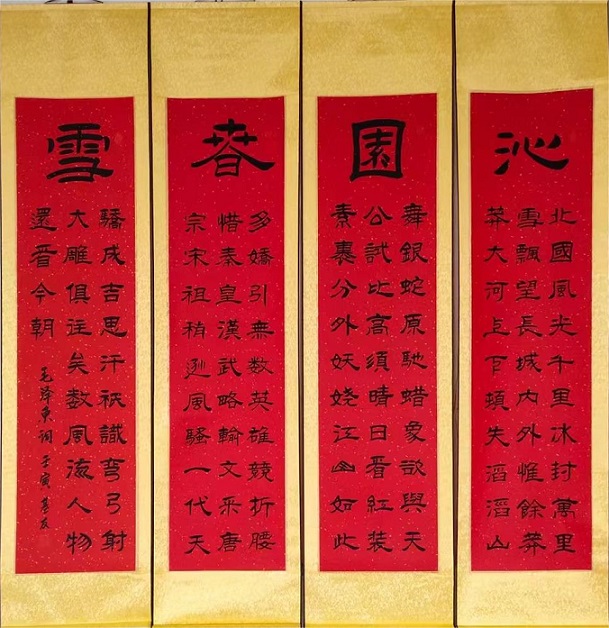 沁
北國風光千里冰封萬里
雪飄望長城內外惟餘莽
莽大河上下頓失滔滔山
園
舞銀蛇原馳蜡象欲與天
公試比高須晴日看紅装
素裹分外妖嬈江山如此
春
多嬌引無数英雄競折腰
惜秦皇漢武略輸文采唐
宗宋祖稍遜風騷一代天
雪
驕成吉思汗祇識彎弓射
大雕俱往矣数風流人物
還看今朝
毛泽東词 壬寅